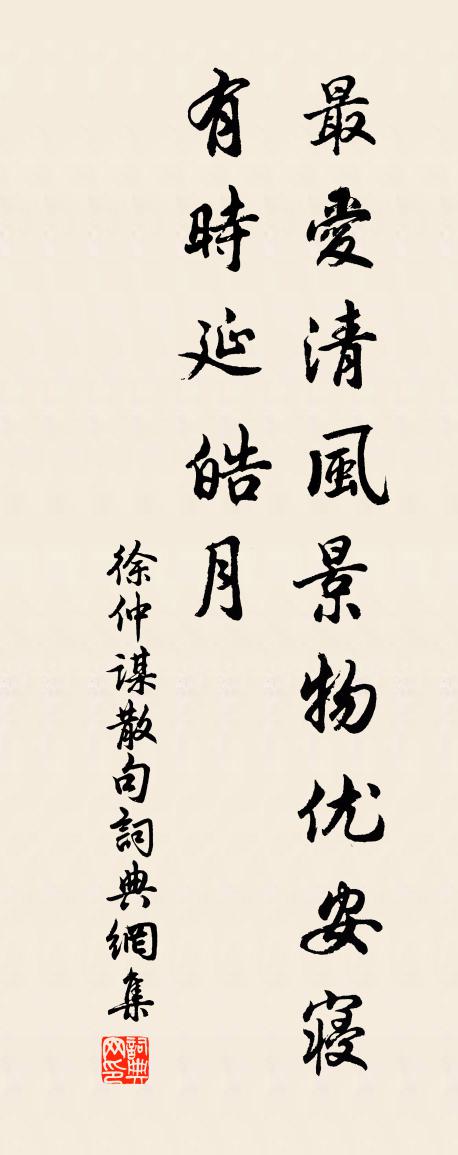 最愛清風景物优安寝
有時延皓月
徐仲謀散句詞典網集
詞典网印